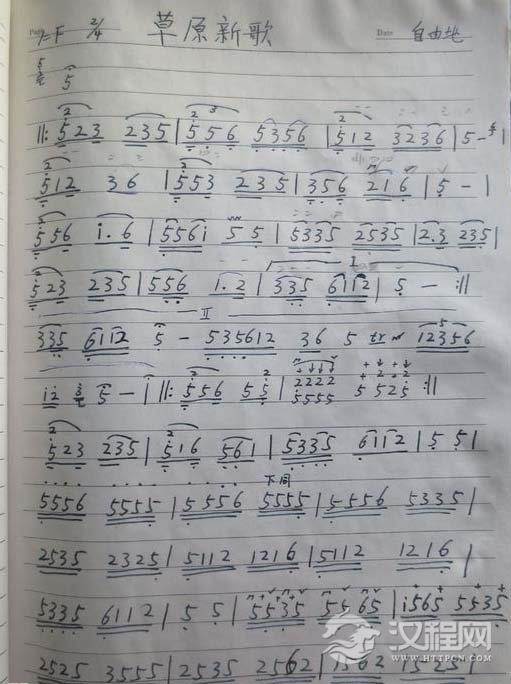 1=F 2/4 草原新歌 Date 自由地
5
||: 523 235 | 556 5356 | 512 3236 | 5 - |
512 36 | 553 235 | 356 216 | 5 - |
556 i.6 | 556i 55 | 5335 2535 | 2.3 235 |
523 235 | 556 1.2 | 335 6112 | 5 - :||
335 6112 5 - 535612 36 5 tr 12356
12 5 - i ||: 556 55 | 2222 5555 5 525 :||
523 235 | 516 561 | 5335 6112 | 5 5 |
5556 5555 | 5556 5555 | 5556 5335 |
2535 2325 | 5112 1216 | 5112 1216 |
5335 6112 | 5 5 | 5535 5565 | i565 5535
2525 3555 | 2535 2562 | 1562 1525 |
汉程网
WWW.HTTPCN.COM